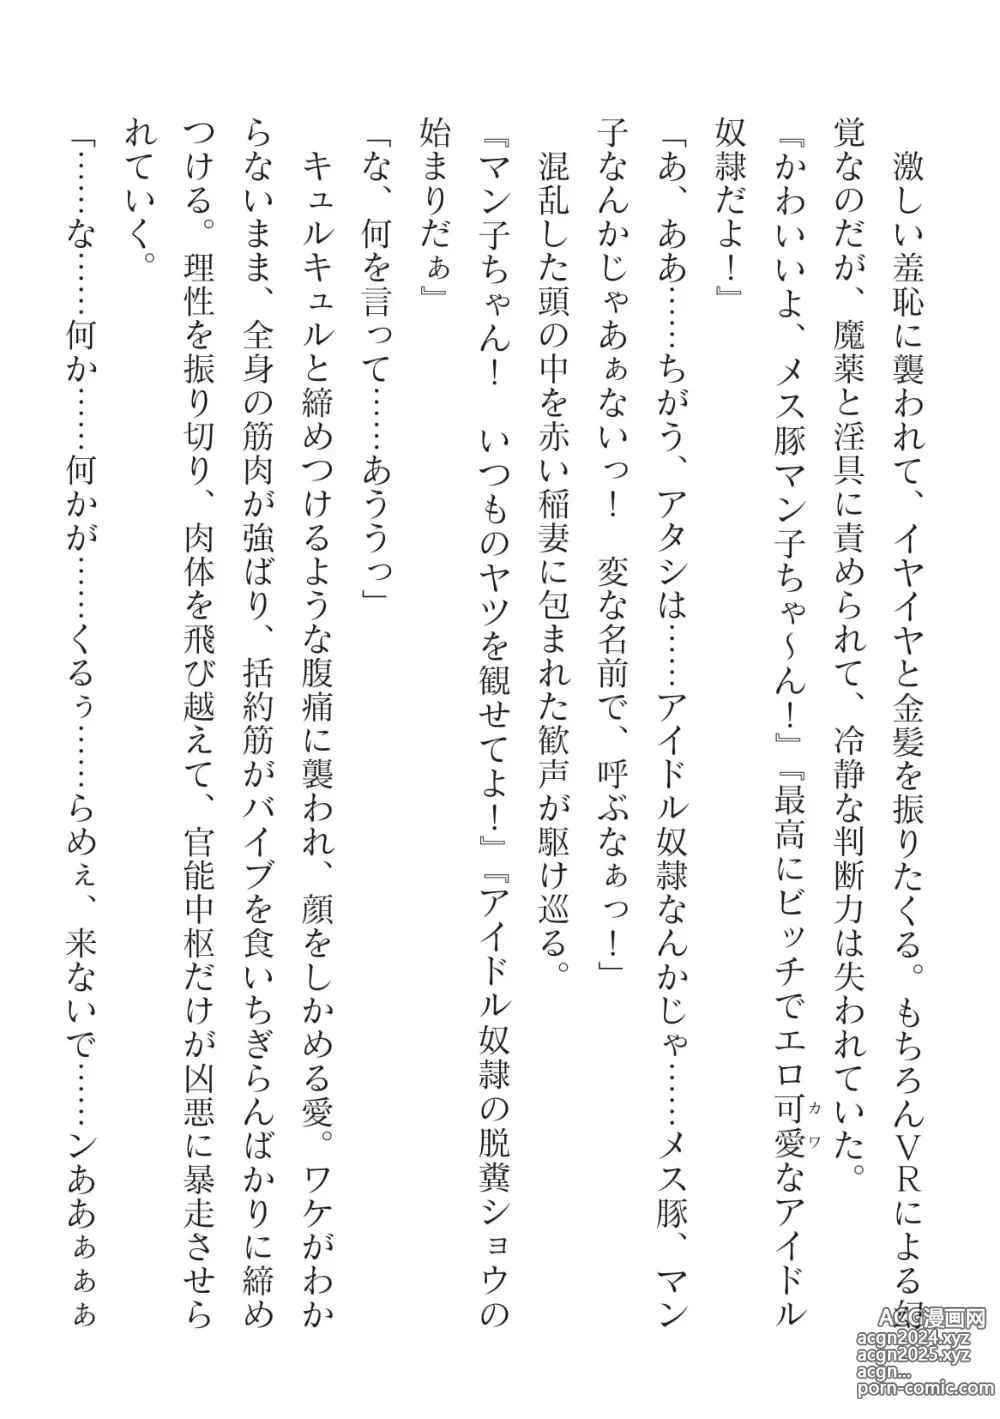 激しい羞恥に襲われて、イヤイヤと金髪を振りたくる。もちろんVRによる幻
覚なのだが、魔薬と淫具に責められて、冷静な判断力は失われていた。
『かわいいよ、メス豚マン子ちゃ〜ん！』『最高にビッチでエロ可愛なアイドル
カワ
奴隷だよ！』
「あ、ああ……ちがう、アタシは……アイドル奴隷なんかじゃ……メス豚、マン
子なんかじゃあぁないっ！　変な名前で、呼ぶなぁっ！」
混乱した頭の中を赤い稲妻に包まれた歓声が駆け巡る。
『マン子ちゃん！　いつものヤツを観せてよ！』『アイドル奴隷の脱糞ショウの
始まりだぁ』
「な、何を言って……あううっ」
キュルキュルと締めつけるような腹痛に襲われ、顔をしかめる愛。ワケがわか
らないまま、全身の筋肉が強ばり、括約筋がバイブを食いちぎらんばかりに締め
つける。理性を振り切り、肉体を飛び越えて、官能中枢だけが凶悪に暴走させら
れていく。
「……な……何か……何かが……くるぅ……らめぇ、来ないで……ンああぁぁぁ
ACG漫画网
acgn2024.xyz
acgn2025.xyz
acgn...
porn-comic.com